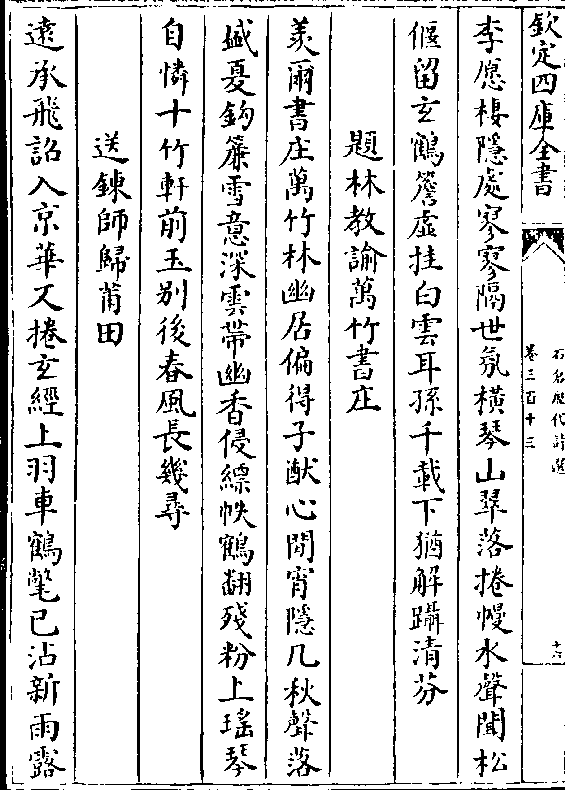 欽定四庫全書
石倉歷代詩選
卷三百十三
李愿棲隱處寥寥隔世氛橫琴山翠落捲幔水聲聞松
偃留玄鶴簷虛挂白雲耳孫千載下猶解躡清芬
題林教諭萬竹書庄
羡爾書庄萬竹林幽居偏得子猷心閒宵隱几秋聲落
盛夏鈎簾雪意深雲帶幽香侵縹帙鶴翻殘粉上瑤琴
自憐十竹軒前玉别後春風長幾尋
送鍊師歸莆田
遠承飛詔入京華又捲玄經上羽車鶴氅已沾新雨露